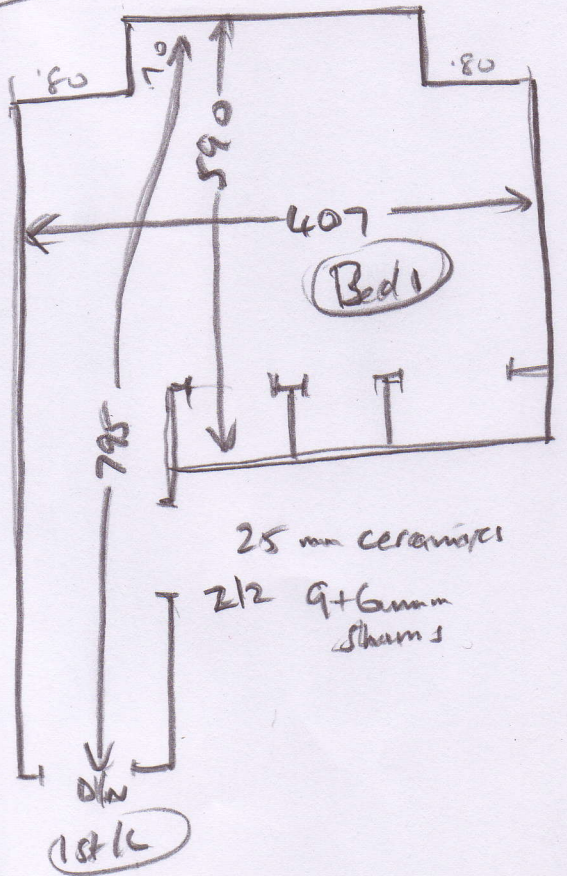 .80
70
.80
590
407
Bed 1
795
25 mm ceramics
2/2 9+6mm
shams
D/W